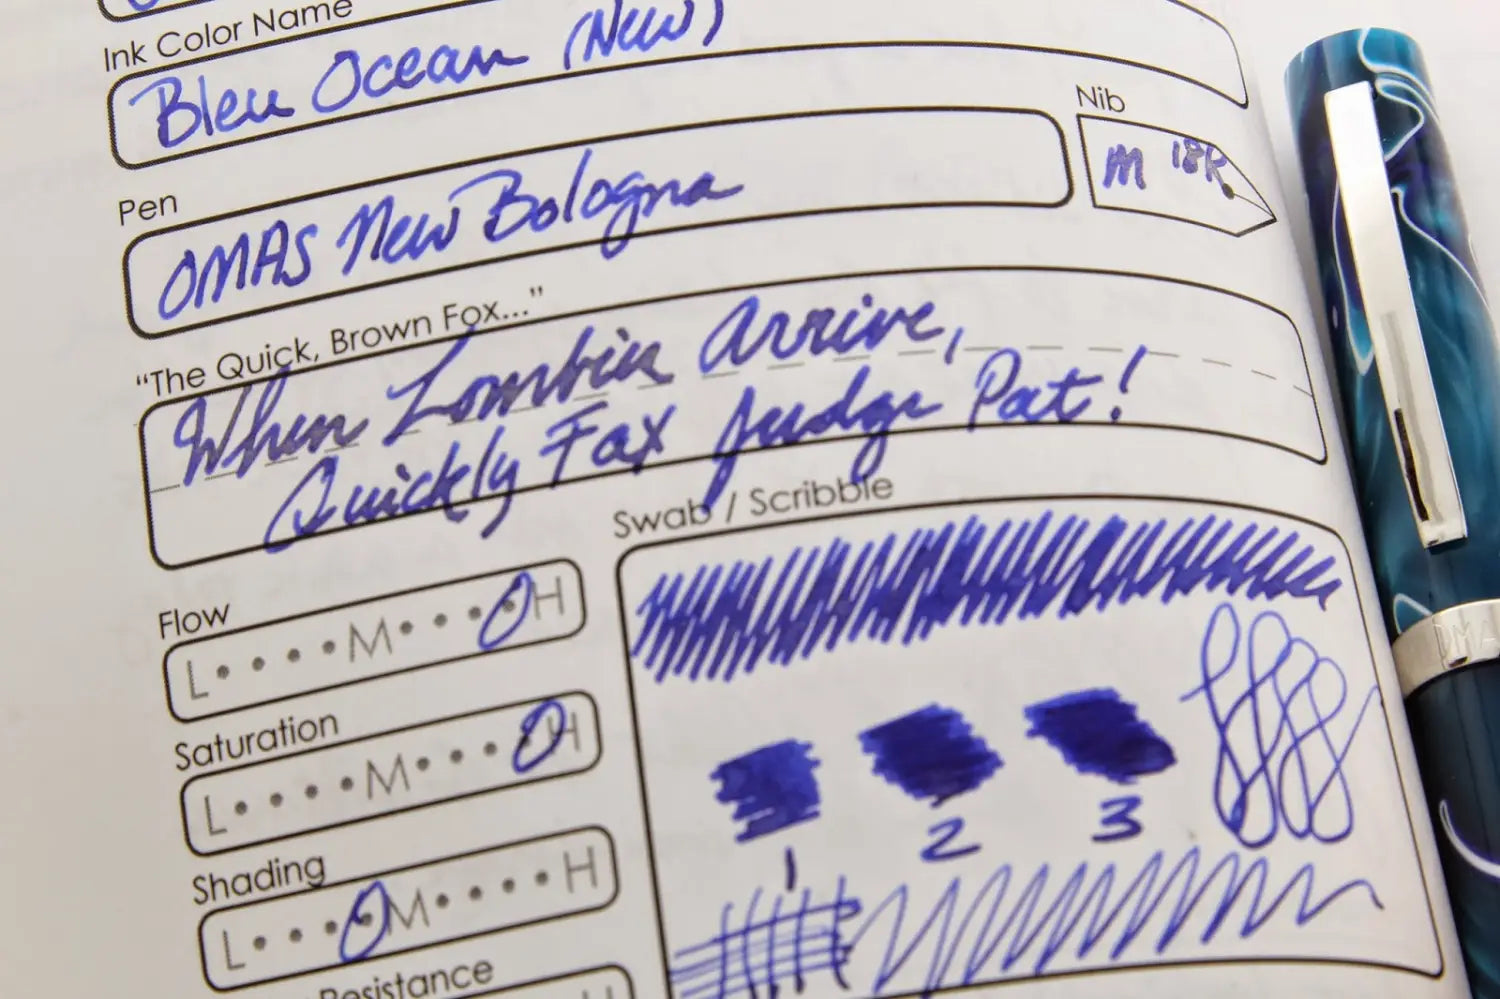 Ink Color Name
Bleu Ocean (New)
Nib
M 18K
Pen
OMAS New Bologna
“The Quick, Brown Fox...”
When Zombies Arrive,
Quickly Fax Judge Pat!
Swab / Scribble
Flow
L M H
Saturation
L M H
Shading
L M H
1 2 3
Resistance
H
OMA